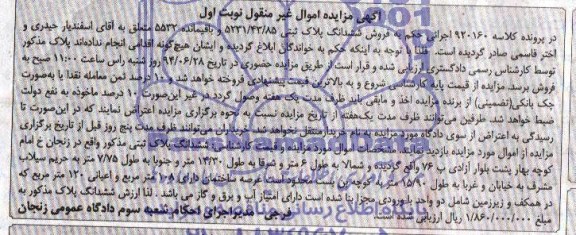 آگهی مزایده اموال غیر منقول نوبت اول
در پرونده کلاسه ۹۲۰۱۶۰ اجرائی حکم به فروش ششدانگ پلاک ثبتی ۵۲۳۱/۴۳/۸۵ و باقیمانده ۵۵۳۳ متعلق به آقای اسفندیار حیدری و
اختر قاسمی صادر گردیده است. فلذا با توجه به اینکه حکم به خواندگان ابلاغ گردیده و ایشان هیچ‌گونه اقدامی انجام نداده‌اند پلاک مذکور
توسط کارشناس رسمی دادگستری ارزیابی شده و قرار است از طریق مزایده حضوری در تاریخ ۹۴/۰۶/۲۸ روز شنبه راس ساعت ۱۱:۰۰ صبح به
فروش برسد. مزایده از قیمت پایه کارشناسی شروع و به بالاترین قیمت پیشنهادی فروخته خواهد شد و ۱۰ درصد ثمن معامله نقدا یا به‌صورت
چک بانکی(تضمینی) از برنده مزایده اخذ و مابقی باید ظرف مدت یک هفته وصول گردد در غیر این‌صورت ۱۰ درصد ماخوذه به نفع دولت
ضبط خواهد شد. طرفین می‌توانند ظرف مدت یک‌هفته از تاریخ مزایده نسبت به نحوه برگزاری مزایده اعتراض نمایند که در این‌صورت تا
رسیدگی به اعتراض از سوی دادگاه مورد مزایده به نام خریدار منتقل نخواهد شد. خریداران می‌توانند ظرف مدت پنج روز قبل از تاریخ برگزاری
مزایده از اموال مورد مزایده بازدید نمایند. مشخصات اموال مورد مزایده و قیمت کارشناسی: ششدانگ پلاک ثبتی مذکور واقع در زنجان خ امام
کوچه بهار پشت بلوار آزادی پ ۷۶ واقع گردیده و شمالا به طول ۶ متر و شرقا به طول ۱۴/۳۰ متر و جنوبا به طول ۷/۷۵ متر به حریم سیلاب
مشرف به خیابان و غربا به طول ۱۵/۹۰ متر به کوچه بن بست محدود است عرصه ساختمان دارای متر مربع و اعیانی ۱۲۰ متر مربع که
در همکف و زیرزمین شامل دو واحد با ورودی مجزا بنا شده است دارای امتیاز آب و برق و گاز می باشد. لذا ارزش ششدانگ پلاک مذکور به
مبلغ ۱/۸۶۰/۰۰۰/۰۰۰ ریال ارزیابی شده است. فرجی مدیر اجرای احکام شعبه سوم دادگاه عمومی زنجان